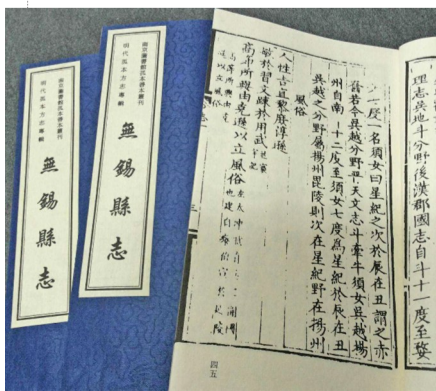 南京圖書館藏本善本叢刊
明代孤本方志專輯
無錫縣志
南京圖書館藏本善本叢刊
明代孤本方志專輯
無錫縣志
理志吳地斗分野後漢郡國志自斗十一度至婺
度一名須女曰星紀之次於辰在丑謂之赤
晉若令吳越分野平天文志斗牽牛須女吳越揚
州自南十二度至須女七度爲星紀於辰在丑
吳越之分野屬揚州毘陵則次在星紀野在揚州
風俗
人性吉直黎庶淳遜
敏於習文疎於用武
四五